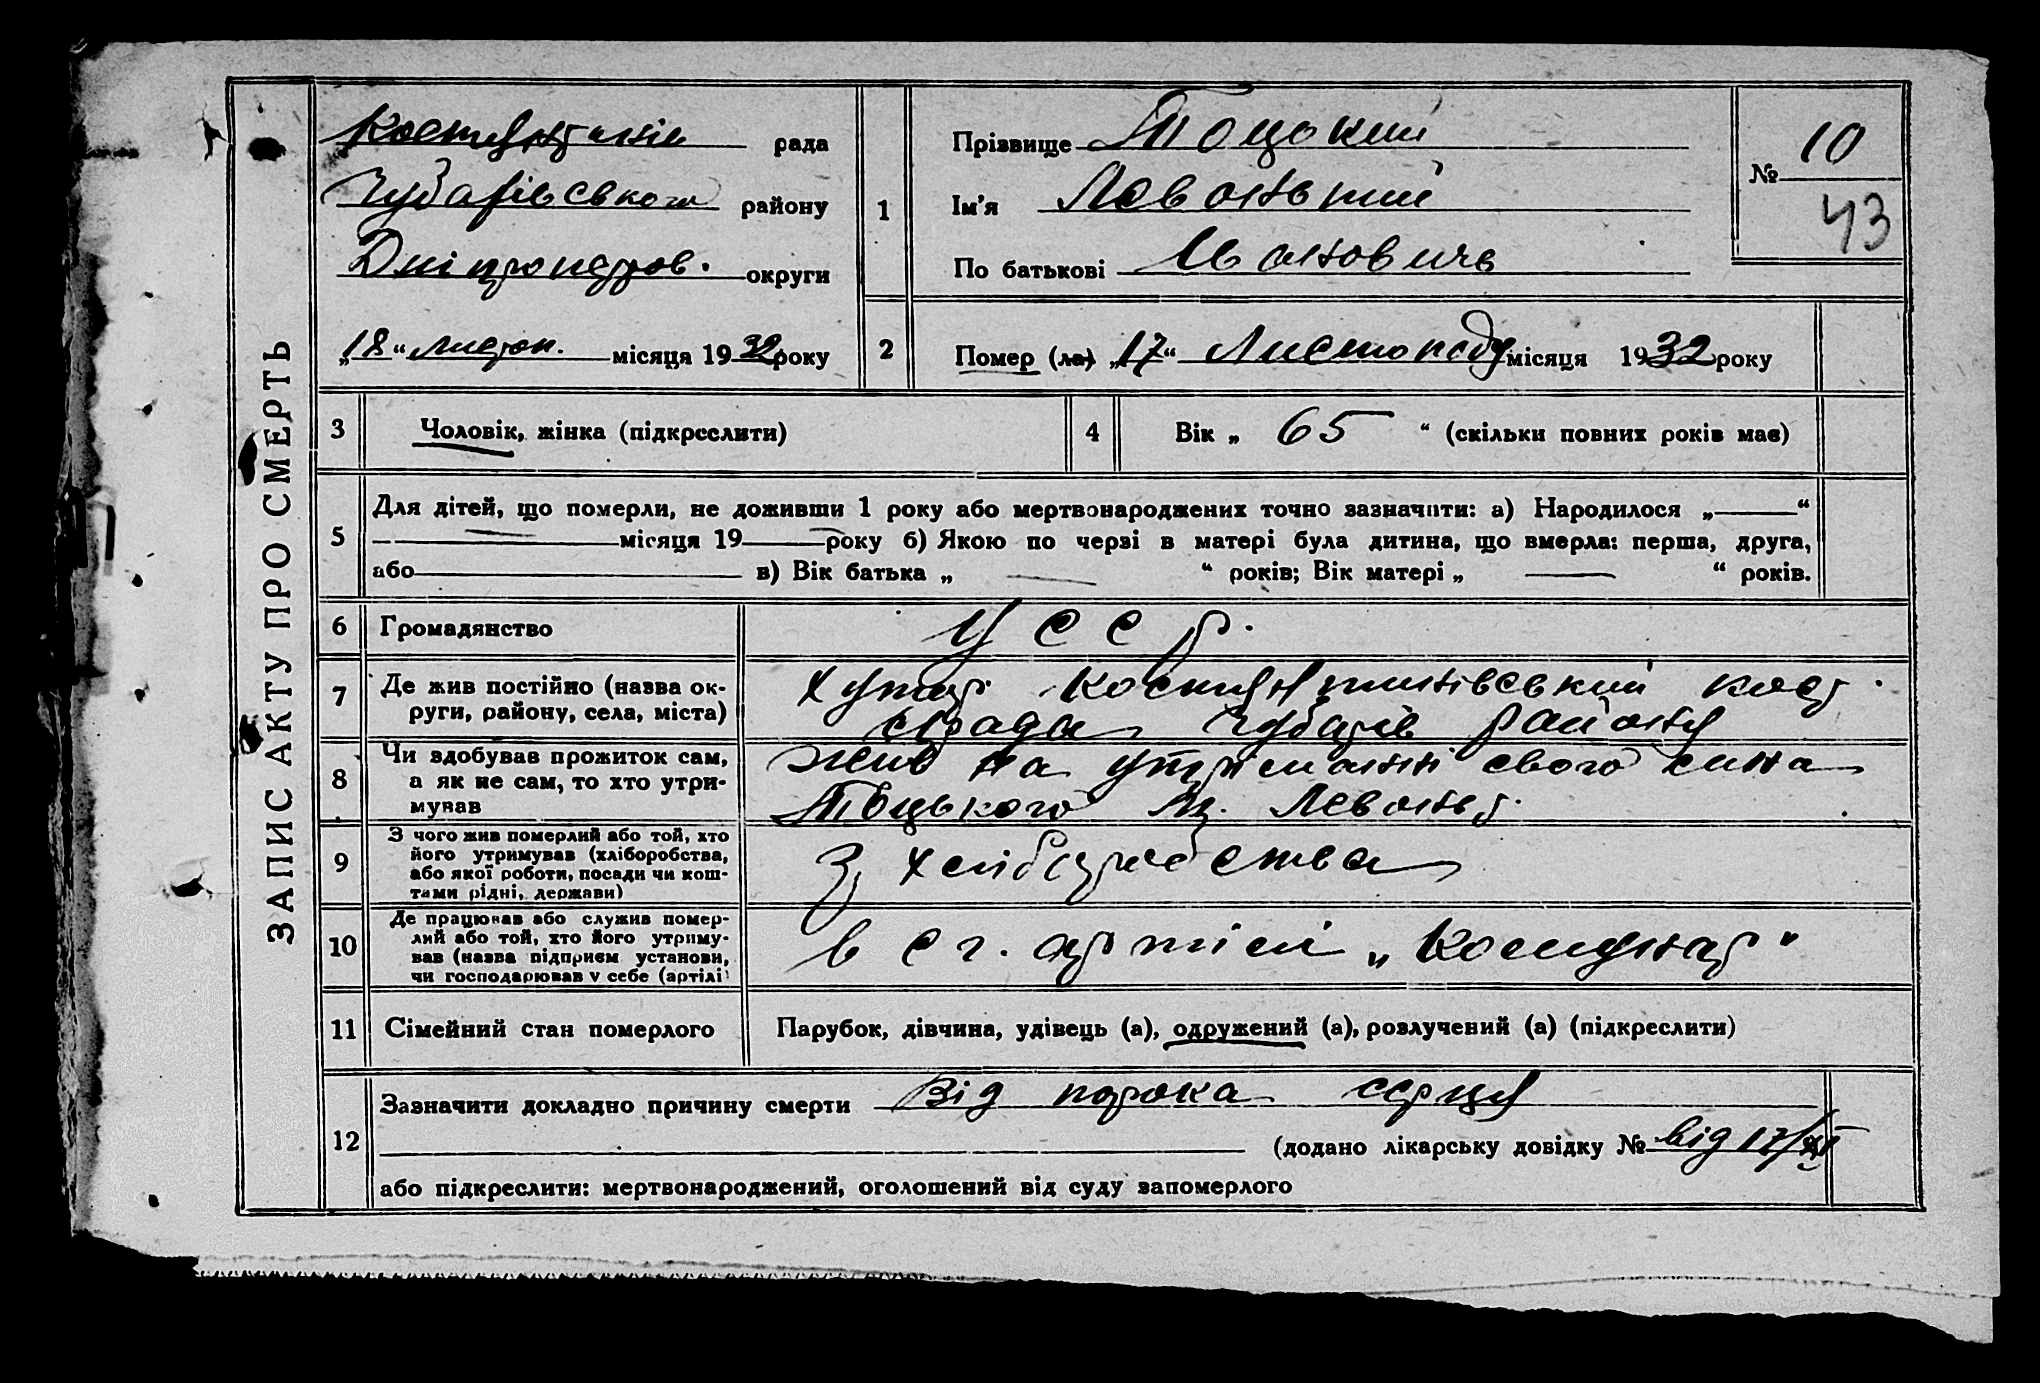 ЗАПИС АКТУ ПРО СМЕРТЬ
рада
Чубарівського району
Дніпропетров. округи
„18“ листоп. місяця 1932 року
1
Прізвище Тоцький
Ім'я
По батькові Іванович
№ 10
43
2
Помер (ла) „17“ Листопаду місяця 1932 року
3
Чоловік, жінка (підкреслити)
4
Вік „ 65 “ (скільки повних років має)
5
Для дітей, що померли, не доживши 1 року або мертвонароджених точно зазначити: а) Народилося „ “
місяця 19 року б) Якою по черзі в матері була дитина, що вмерла: перша, друга,
або в) Вік батька „ “ років; Вік матері „ “ років.
6
Громадянство
УССР.
7
Де жив постійно (назва округи, району, села, міста)
хутор
с/ради Чубарів району
8
Чи вдобував прожиток сам,
а як не сам, то хто утри-
мував
жив на утриманні свого сина
Тоцького
9
З чого жив померлий або той, хто
його утримував (хліборобства,
або якої роботи, посади чи кош-
тами рідні, держави)
З хліборобства
10
Де працював або служив помер-
лий або той, хто його утриму-
вав (назва підприєм установи,
чи господарював у себе (артілі)
в с г. артілі „Комунар“
11
Сімейний стан померлого
Парубок, дівчина, удівець (а), одружений (а), розлучений (а) (підкреслити)
12
Зазначити докладно причину смерти Від порока серця
(додано лікарську довідку № від 17/XI
або підкреслити: мертвонароджений, оголошений від суду запомерлого